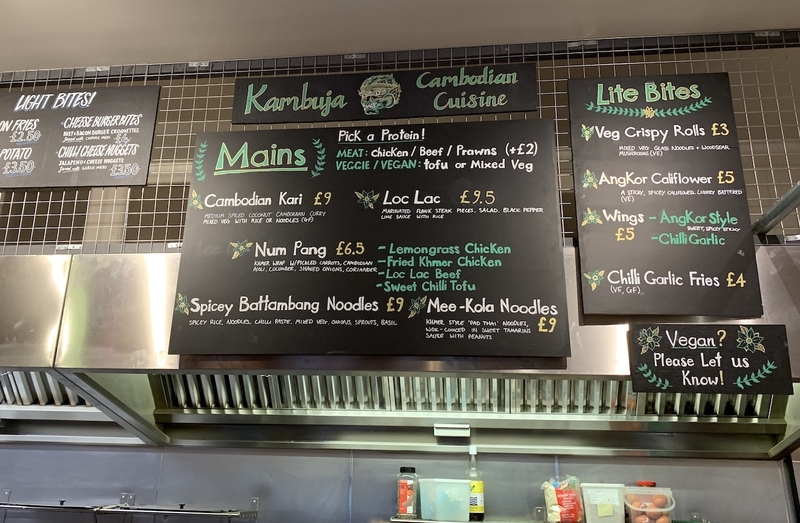 LIGHT BITES!
ON FRIES
£2.50
POTATO
£3.50
- CHEESE BURGER BITES
BEEF + BACON BURGER CROQUETTES
- CHILLI CHEESE NUGGETS
JALAPENO + CHEESE NUGGETS
£3.50
Kambuja
Cambodian
Cuisine
Mains
Pick a Protein!
MEAT: chicken / Beef / Prawns (+£2)
VEGGIE / VEGAN: tofu or Mixed Veg
Cambodian Kari £9
MEDIUM SPICED COCONUT CAMBODIAN CURRY
MIXED VEG WITH RICE OR NOODLES (GF)
Loc Lac £9.5
MARINATED FLANK STEAK PIECES, SALAD, BLACK PEPPER
LIME SAUCE WITH RICE
Num Pang £6.5
KHMER WRAP W/PICKLED CARROTS, CAMBODIAN
AIOLI, CUCUMBER, SHAVED ONIONS, CORIANDER
- Lemongrass Chicken
- Fried Khmer Chicken
- Loc Lac Beef
- Sweet Chilli Tofu
Spicey Battambang Noodles £9
SPICEY RICE, NOODLES, CHILLI PASTE, MIXED VEG, ONIONS, SPROUTS, BASIL
Mee-Kola Noodles
£9
KHMER STYLE 'PAD THAI' NOODLES,
WOK-COOKED IN SWEET TAMARIND
SAUCE WITH PEANUTS
Lite Bites
Veg Crispy Rolls £3
MIXED VEG GLASS NOODLES + WOODEAR
MUSHROOMS (VE)
AngKor Califlower £5
A STICKY, SPICEY CALIFLOWER, LIGHTLY BATTERED
(VE)
Wings - AngKor Style
£5 SWEET, SPICEY STICKY
- Chilli Garlic
Chilli Garlic Fries £4
(VE, GF)
Vegan?
Please Let us
Know!